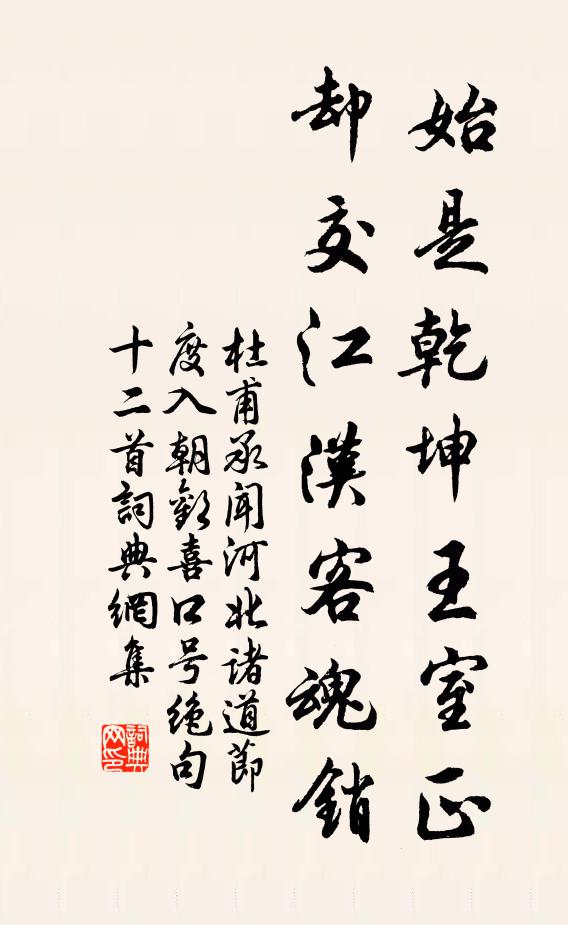 始是乾坤王室正
却交江漢客魂銷
杜甫承聞河北諸道節
度入朝歡喜口号絶句
十二首詞典網集
詞典網印